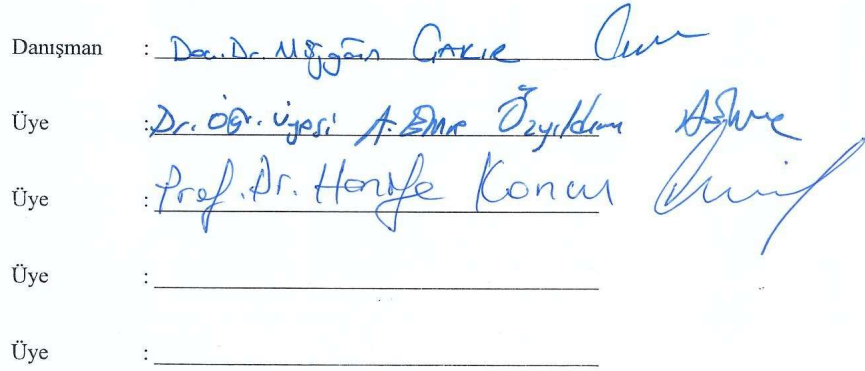 Danışman : Doç. Dr. Müjgân ÇAKIR
Üye : Dr. Öğr. Üyesi A. Emre Özyıldırım
Üye : Prof. Dr. Hanife Koncu
Üye :
Üye :